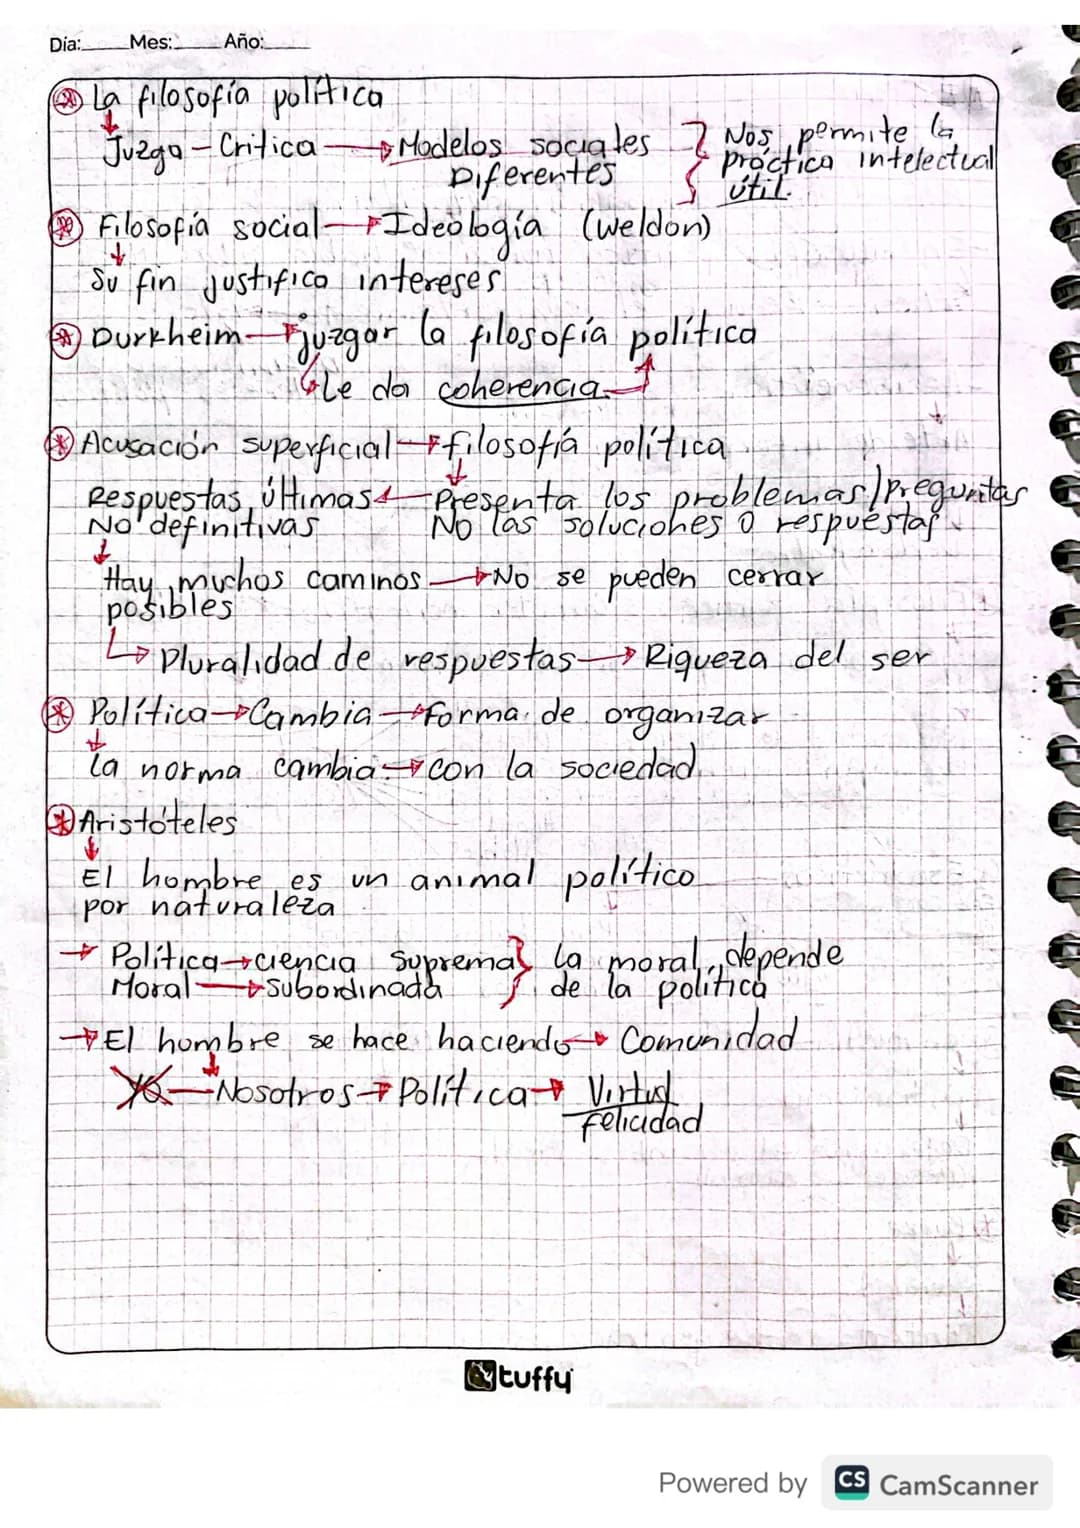 Dia:____ Mes:____ Año:____
⊛ La filosofía política
↓
Juzga - Critica → Modelos sociales Diferentes } Nos permite la práctica intelectual útil.
⊛ Filosofía social → Ideología (weldon)
↓
Su fin justifica intereses
⊛ Durkheim → juzgar la filosofía política
↳ Le da coherencia ↑
⊛ Acusación superficial → filosofía política
↓
Respuestas últimas ← Presenta los problemas/Preguntas
No definitivas No las soluciones o respuestas
↓
Hay muchos caminos → No se pueden cerrar
posibles
↳ Pluralidad de respuestas → Riqueza del ser
⊛ Política → Cambia → Forma de organizar
↓
la norma cambia → con la sociedad
⊛ Aristóteles
↓
El hombre es un animal político
por naturaleza
→ Política → ciencia Suprema } la moral depende
Moral → subordinada } de la política
→ El hombre se hace haciendo → Comunidad
↓
Yo — Nosotros → Política → Virtud
Felicidad
tuffy
Powered by CS CamScanner